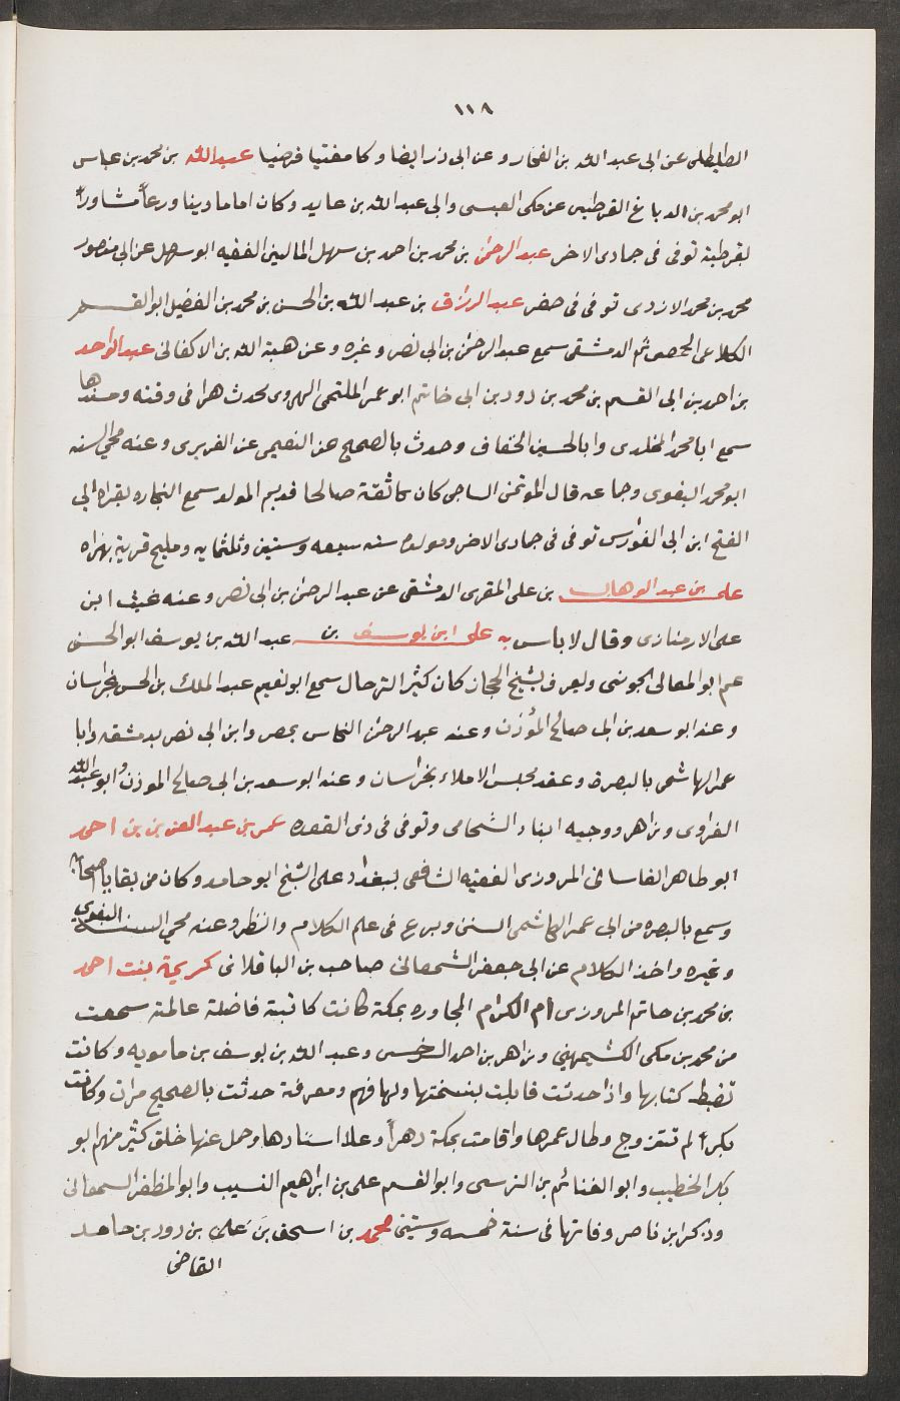 ١١٨
الطليطلى عن ابى عبد الله بن الفخار وعن ابى ذر ايضا وكا مفتيا فرضيا عبدالله بن محمد بن عباس
ابو محمد بن الدباغ القرطبى عن مكى العبسى وابى عبد الله بن عايد وكان اماما دينا ورعاً مشاوراً
بقرطبة توفى فى جمادى الاخر عبد الرحمن بن محمد بن احمد بن سهل المالينى الفقيه ابو سهل عن ابى منصور
محمد بن محمد الازدى توفى فى صفر عبد الرزاق بن عبد الله بن الحسن بن محمد بن الفضيل ابو القسم
الكلاعى الحمصى ثم الدمشقى سمع عبد الرحمن بن ابى نصر وغيره وعن هبة الله بن الاكفانى عبد الواحد
بن احمد بن ابى القسم بن محمد بن دود بن ابى حاتم ابو عمر المليحى الهروى محدث هراة فى وقته ومسندها
سمع ابا محمد المخلدى وابا الحسين الخفاف وحدث بالصحيح عن النعيمى عن الفربرى وعنه محي السنه
ابو محمد البغوى وجماعه قال الموتمن الساجى كان ثقة صالحا قديم المولد سمع البخارى بقراة ابى
الفتح ابن ابى الفوارس توفى فى جمادى الاخر ومولده سنه سبعه وستين وثلثمايه ومليح قرية بهراه
على بن عبد الوهاب بن على المقرى الدمشقى عن عبد الرحمن بن ابى نصر وعنه غيث ابن
على الارمنازى وقال لا باس به على ابن يوسف بن عبد الله بن يوسف ابو الحسن
عم ابو المعالى الجوينى ويعرف بشيخ الحجاز كان كثير الترحال سمع ابو نعيم عبد الملك بن الحسن بخراسان
وعنه ابو سعد بن ابى صالح المؤذن وعنه عبد الرحمن النحاس بمصر وابن ابى نصر بدمشقه وابا
عمر الهاشمى بالبصرة وعقد مجلس الاملاء بخراسان وعنه ابو سعد بن ابى صالح الموذن وابو عبد الله
الفراوى وزاهر ووجيه ابناء الشحامى وتوفى فى ذى القعده عمر بن عبد العزيز بن احمد
ابو طاهر الفاسانى المروزى الفقيه الشافعى ببغداد على الشيخ ابو حامد وكان من بقايا اصحابه
وسمع بالبصره من ابى عمر الهاشمى السنن وبرع فى علم الكلام والنظر وعنه محي السنة البغوى
وغيره واخذ الكلام عن ابى جعفر الشمعانى صاحب بن الباقلانى كريمة بنت احمد
بن محمد بن حاتم المروزى أم الكرام المجاوره بمكة كانت كاتبة فاضلة عالمة سمعت
من محمد بن مكى الكشيمهينى وزاهر بن احمد السرخسى وعبد الله بن يوسف بن مامويه وكانت
تضبط كتابها واذا حدثت قابلت بنسختها ولها فهم ومعرفة حدثت بالصحيح مرات وكانت
بكراً لم تتزوج وطال عمرها واقامت بمكة دهراً وعلا اسنادها وحمل عنها خلق كثير منهم ابو
بكر الخطيب وابو الغنائم بن النرسى وابو القسم على بن ابراهيم النسيب وابو المظفر السمعانى
وذكر ابن ناصر وفاتها فى سنة خمسه وستين محمد بن اسحق بن على بن دود بن حامد
القاضى